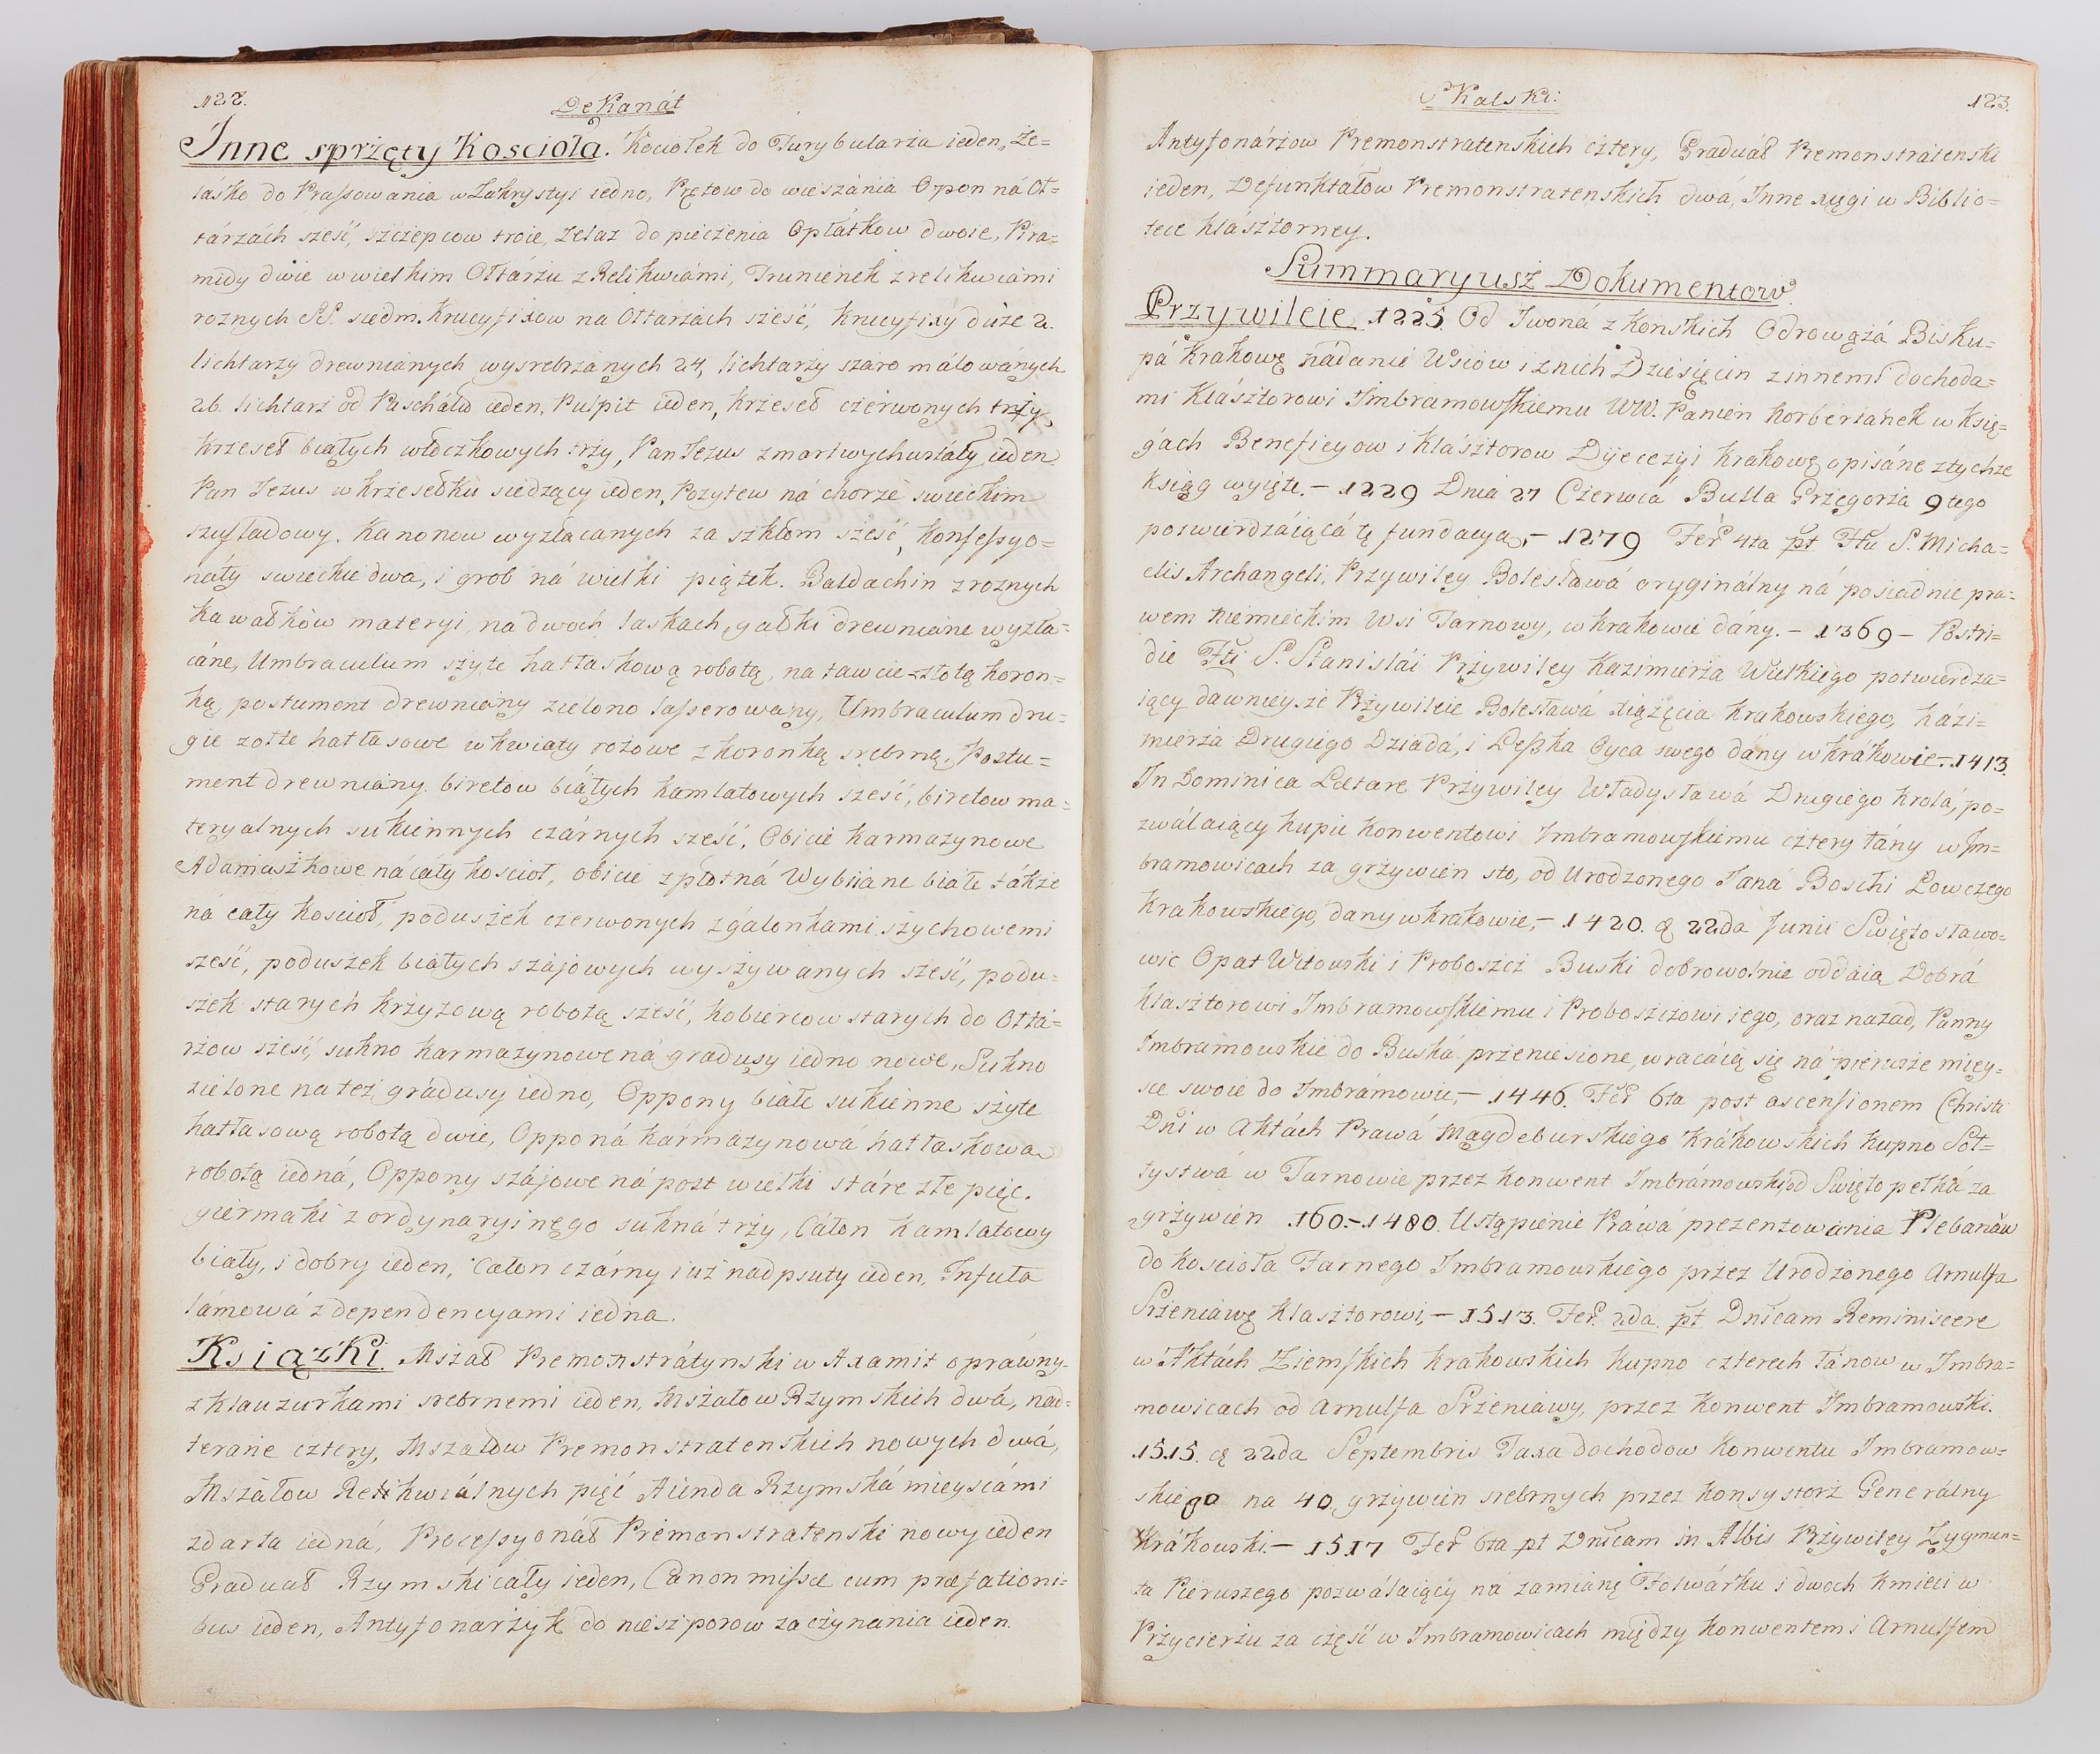 122.
Dekanát
Inne sprzęty Kosciola. Kociołek do Turybularza ieden, Że=
lásko do Prassowania w Zakrystyi iedno, Prętow do wieszánia Opon ná Oł=
tárzách sześć, szczepcow troie, żelaz do pieczenia Opłátkow dwoie, Pira=
midy dwie w wielkim Ołtárzu z Relikwiámi, Trunienek z relikwiami
roznych SS. siedm. Krucyfixow na Ołtarzach sześć, Krucyfixy duże 2.
lichtarzy drewniánych wysrebrzanych 24, lichtarzy szaro málowánych
26. lichtarz od Paschału ieden, Pulpit ieden, krzeseł czerwonych trzy,
krzeseł białych włoczkowych trzy, Pan Jezus zmartwychwstáły ieden
Pan Jezus w krzesełku siedzący ieden, Pozytew ná chorze swieckim
szufladowy. Kanonow wyzłacanych za szkłem sześć, Konfessyo=
náły swieckie dwa, i grob ná wielki piątek. Baldachin z roznych
kawałkòw materyi na dwoch laskach, gałki drewniane wyzła=
cáne, Umbraculum szyte haftaskową robotą, na ławcie złotą koron=
ką, postument drewniány zielono lasserowany, Umbraculum dru=
gie żołte hatłasowe w kwiaty rożowe z koronką srebrną, Postu=
ment drewniány. biretow białych kamlatowych sześć, biretow ma=
teryalnych sukiennych czárnych sześć, Obicie karmazynowe
Adamaszkowe ná cały kościoł, obicie z płotná Wybiiane białe tákże
ná cały kościoł, poduszek czerwonych z galonkami szychowemi
sześć, poduszek białych szájowych wyszywanych sześć, podu=
szek starych krzyżową robotą sześć, kobiercow starych do Ołtá=
rzow sześć, sukno karmazynowe ná gradusy iedno nowe, Sukno
zielone na też grádusy iedno, Oppony białe sukienne szyte
hatłasową robotą dwie, Opponá kármázynowá hatłaskową
robotą iedná, Oppony szájowe ná post wielki stáre złe pięć.
giermaki z ordynaryinego sukná trzy, Cálon kamlatowy
biały, i dobry ieden, Calon czárny iuż nadpsuty ieden, Infuła
lámowá z dependencyami iedna.
Książki. Mszał Premonstrátynski w Axamit opráwny
z klauzurkami srebrnemi ieden, Mszałow Rzymskich dwá, nad=
terane cztery, Mszałow Premonstratenskich nowych dwá,
Mszáłow Rekwiálnych pięć Aienda Rzymská mieyscámi
zdarta iedná, Processyonał Premonstratenski nowy ieden
Graduał Rzymski cały ieden, Canon missæ cum præfationi=
bus ieden, Antyfonarzyk do nieszporow zaczynania ieden.
Skalski:
123.
Antyfonárzow Premonstratenskich cztery, Graduał Premonstrátenski
ieden, Defunktałow Premonstratenskich dwá, Inne xięgi w Biblio=
tece klásztorney.
Summaryusz Dokumentow.
Przywileie 1225. Od Iwoná z Konskich Odrowążá Bisku=
pá Krakowę nádanie Wsiow i z nich Dziesięcin z innemi dochoda=
mi Klásztorowi Imbramowskiemu WW. Panien Norbertánek w Księ=
gách Beneficyow i Klásztorow Dyecezyi Krakowę opisáne z tychże
Ksiąg wyięte. – 1229 Dnia 27 Czerwca Bulla Grzegorza 9tego
potwierdzáiącá tę fundacyą, – 1279 Fer̃ 4ta pt Ftũ S. Micha=
elis Archangeli, Przywiley Bolesławá oryginálny ná posiadnie pra=
wem Niemieckim Wsi Tarnowy, w Krakowie dány. – 1369 – Postri=
die Fti S. Stanislái Przywiley Kazimierza Wielkiego potwierdza=
iący dawnieysze Przywileie Bolesławá xiążęcia Krakowskiego, Kázi=
mierza Drugiego Dziadá, i Leszka Oyca swego dány w Krákowie. – 1413.
In Dominica Lætare Przywiley Władysławá Drugiego Krolá, po=
zwálaiący kupić Konwentowi Imbramowskiemu cztery łány w Im=
bramowicach za grzywien sto, od Urodzonego Janá Boschi Łowczego
Krakowskiego, dany w Krakowie, – 1420. d 22da Junii Swiętosławo=
wic Opat Witowski i Proboszcz Buski dobrowolnie oddaią Dobrá
Klasztorowi Imbramowskiemu i Proboszczowi iego, oraz nazad, Panny
Imbramowskie do Buská przeniesione, wracáią się ná pierwsze miey=
sce swoie do Imbrámowic, – 1446. Fer̃ 6ta post ascensionem Christi
Dñi w Aktách Prawá Magdeburskiego Krákowskich kupno Soł=
tystwá w Tarnowie przez Konwent Imbrámowski od Swiętopełká za
grzywien 160. – 1480. Ustąpienie Práwá prezentowania Plebanów
do Kościoła Farnego Imbramowskiégo przez Urodzonego Arnulfa
Szreniáwę Klasztorowi, – 1513. Fer̃. 2da pt Dnicam Reminiscere
w Aktách Ziemskich Krakowskich kupno czterech łánow w Imbra=
mowicach od Arnulfa Srzeniáwy, przez Konwent Imbramowski.
1515. d 22da Septembris Taxa dochodow Konwentu Imbramow=
skiego na 40. grzywien srebrnych przez Konsystorz Generálny
Krákowski. – 1517 Fer̃ 6ta pt Dnicam in Albis Przywiley Zygmun=
ta Pierwszego pozwálaiący ná zamiánę Folwárku i dwoch kmieci w
Przycierzu za część w Imbramowicach między Konwentem i Arnulfem